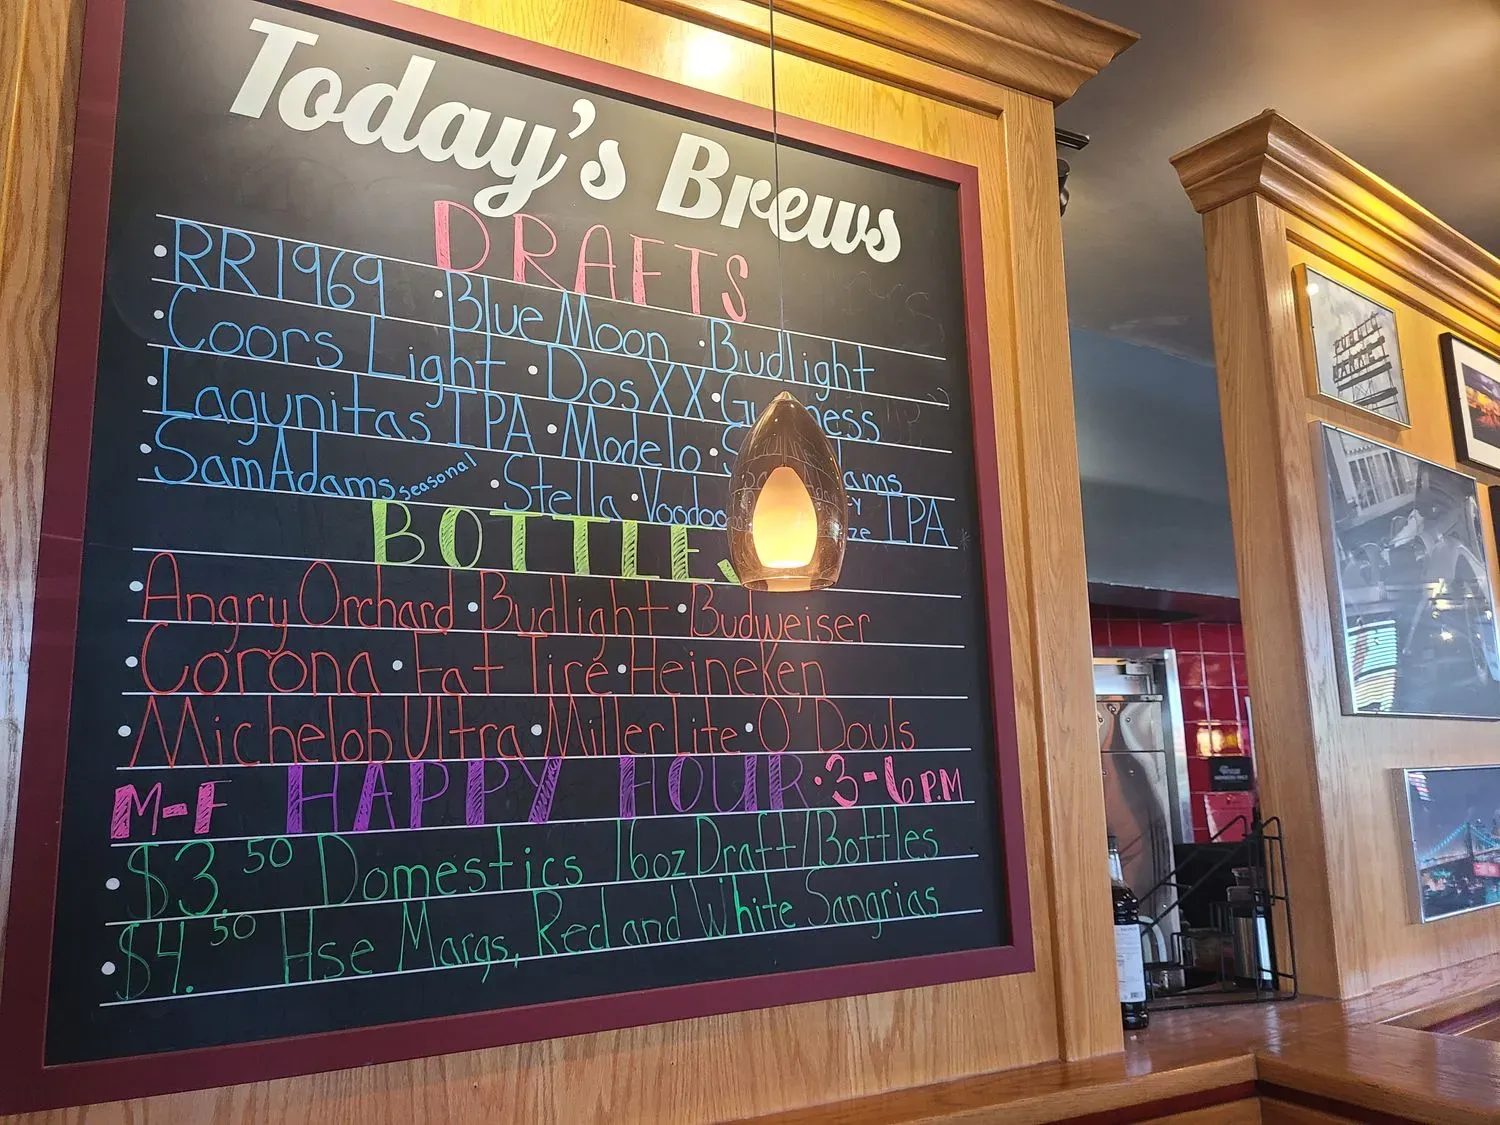 Today's Brews
DRAFTS
• RR1969 • Blue Moon • Budlight
• Coors Light • Dos XX • Guinness
• Lagunitas IPA • Modelo • Sam Adams
• Sam Adams seasonal • Stella • Voodoo IPA
BOTTLES
• Angry Orchard • Budlight • Budweiser
• Corona • Fat Tire • Heineken
• Michelob Ultra • Miller Lite • O'Douls
M-F HAPPY HOUR • 3-6 P.M
• $3.50 Domestics 16oz Draft/Bottles
• $4.50 Hse Margs, Red and White Sangrias